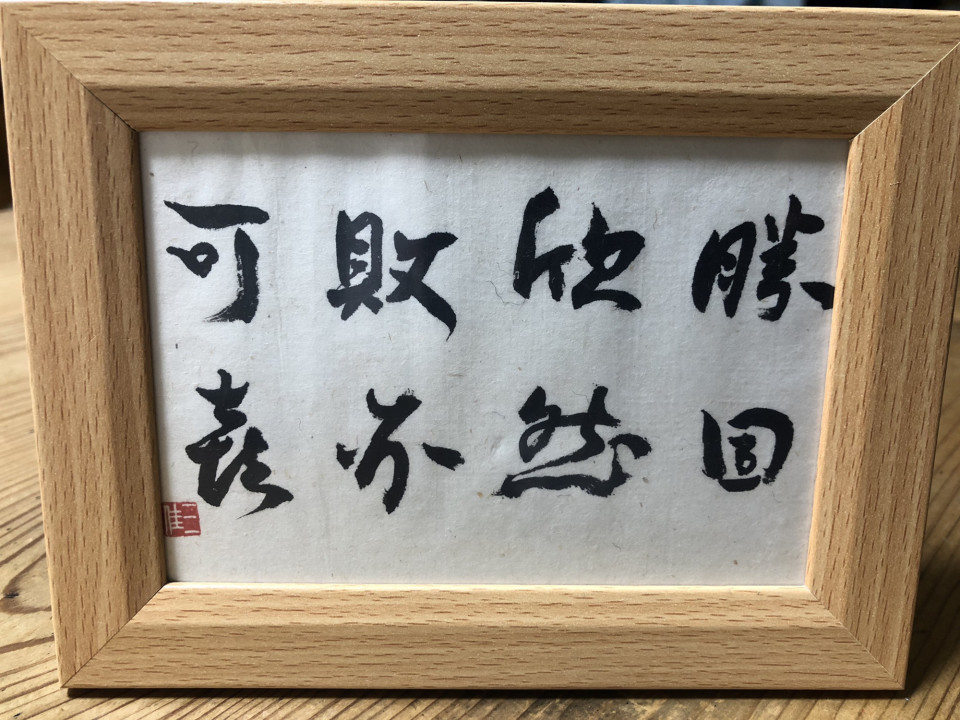 勝固
欣然
敗亦
可喜